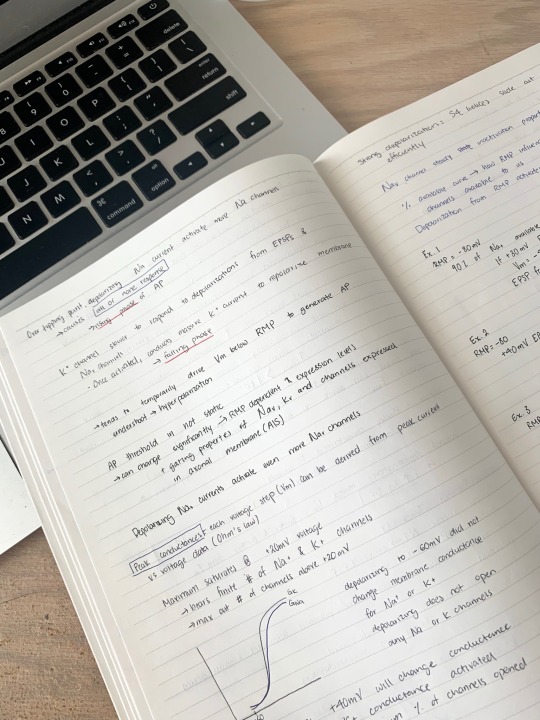 delete
return
shift
command
option
8
9
0
U
I
O
P
J
K
L
N
M
Over tipping point, depolarizing Na current activate more Na channels
→ causes all or none response
→ rising phase of AP
K+ channel slower to respond to depolarizations from EPSPs &
Nav channels
- Once activated, conducts massive K+ current to repolarize membrane
→ falling phase
→ tends to temporarily drive Vm below RMP to generate AP
undershoot → hyperpolarization
AP threshold in not static
→ can change significantly → RMP dependent & expression levels
+ gating properties of Nav, Kv and channels expressed
in axonal membrane (AIS)
Depolarizing Nav currents activate even more Nav channels
Peak conductances + each voltage step (Vm) can be derived from peak current
vs voltage data (Ohm's law)
Maximum saturates @ +20mV voltage
→ bears finite # of Na+ & K+ channels
→ max out # of channels above +20mV
GK
GNa
depolarizing to -60mV did not
change membrane conductance
for Na+ or K+
depolarizing does not open
any Na or K channels
+40mV will change conductance
conductance activated
% of channels opened
Strong depolarization: S4 helices slide out
efficiently
Nav channel steady state inactivation propert
% available curve → how RMP influenc
channels available to us
Depolarization from RMP activates
Ex. 1
RMP = -80mV
90% of Nav available
If +30mV
Vm = -5
EPSP fo
Ex. 2
RMP = -60
+40mV EP
Ex. 3
RMP